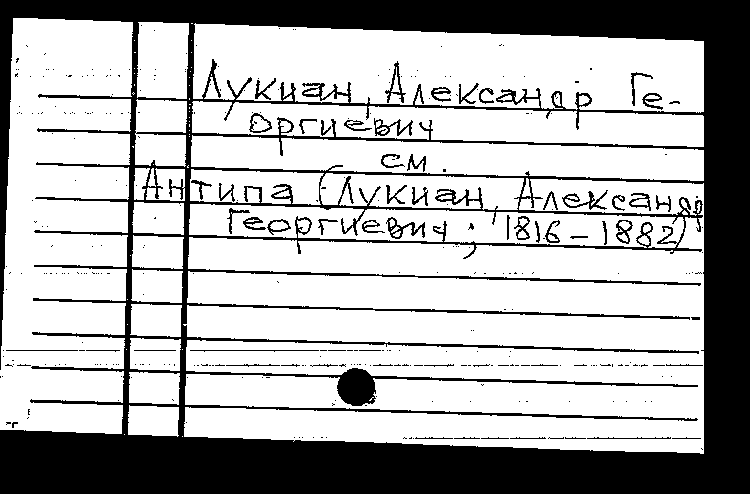 Лукиан, Александр Ге-
оргиевич
см.
Антипа (Лукиан, Александр
Георгиевич; 1816-1882)